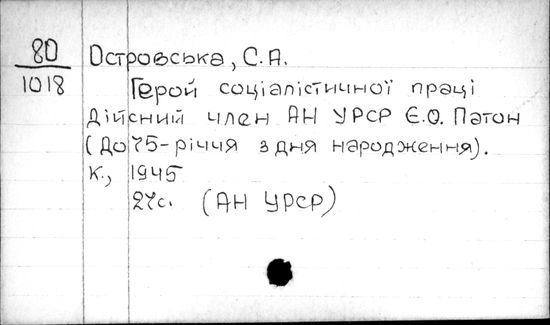 80
1018
Островська, С.А.
Герой соціалістичної праці
дійсний член АН УРСР Є.О. Патон
(До 75-річчя з дня народження).
К., 1945
27с. (АН УРСР)